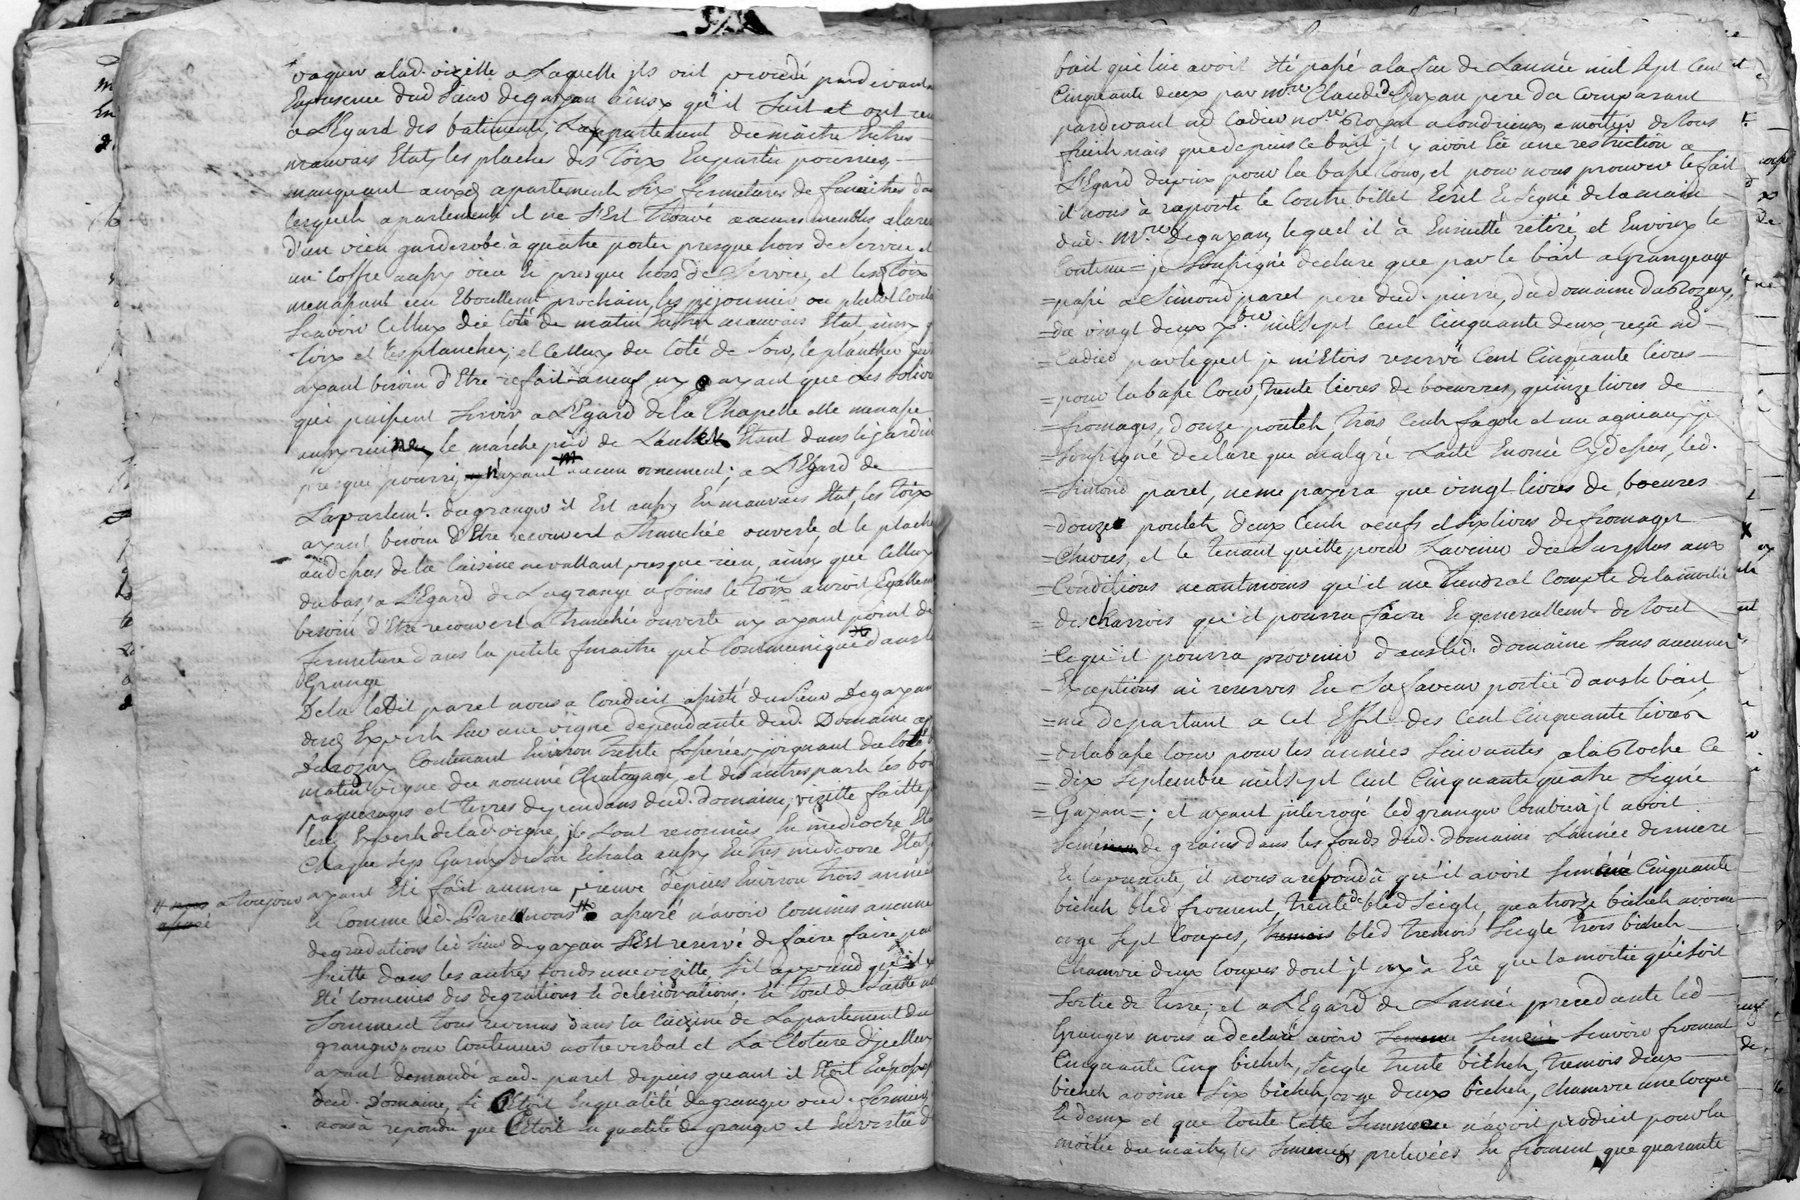 vaquer a lad. vizitte a Laquelle ils ont procédé pardevant
En presence dud Sieur degazan ainsy qu'il suit et ont
a L'Egard des batiments, L'appartement du maitre En tres
mauvais Etat, les planches des Toix En partie pourries,
manquant auxd apartements six fermetures de fenaitres
lesquels apartements il ne s'Est trouvé aucuns meubles
d'un vieu garderobe à quatre portes presque hors de service et
un Coffre aussy vieu et presque hors de service, et les Toix
menassant un Eboullemt prochain, les
Scavoir Cellux du Coté de matin En tres mauvais Etat, ainsy
Toix et les planchers, et Cellux du Coté de soir, le plancher
ayant besoin d'Etre refait aneuf ny ayant que des
qui puissent servir a L'Egard de la Chapelle elle menasse
aussy ruine, le marche pied de L'autel Etant dans le jardin
presque pourri, n'ayant aucun ornement; a L'Egard de
L'apartemt du granger il Est aussy En mauvais Etat, les Toix
ayant besoin d'Etre recouvert a Tranchée ouverte, et le plancher
audessus de la Cuisine ne vallant presque rien, ainsy que Cellux
du bas; a L'Egard de La grange a foins le Toix auroit Egallement
besoin d'Etre recouvert a Tranchée ouverte ny ayant point de
fermeture dans la petite fenaitre qui Communique dans
Grange
De la ledit paret nous a Conduit assisté du Sieur Degazan
desd Experts sur une vigne dependante dud. Domaine
Durozay Contenant Environ Trente fosserées, joignant du Coté
matin vigne du nommé Chatagner, et des autres parts les
paquerages et Terres dependans dud. domaine, vizitte faitte
lesd Experts de lad. vigne, ils L'ont reconnus En mediocre Etat
Chaque seps Garny de son Echala aussy En tres mediocre Etat
ayant Eté fait aucune preuve depuis Environ Trois années
et Comme led. Paret nous # assuré n'avoir Commis aucune
# a toujours
assuré
degradations led Sieur degazan s'Est reservé de faire faire par
suitte dans les autres fonds une vizitte, s'il aprend qu'il
Eté Commis des degrations et deteriorations. Et Tout de suitte
Sommes Tous revenus dans la Cuizine de L'apartement du
granger pour Continuer notre verbal et La Cloture d'icelluy
ayant demandé aud. paret depuis quant il Etoit En possession
dud. Domaine, s'il Etoit En qualité de granger ou de fermier
nous à repondu que C'etoit En qualité de granger et En vertu
bail qui lui avoit été passé a la fin de L'année mil sept Cent
Cinquante deux par mre Claude Degazan pere du Comparant
pardevant me Cadier nore Royal a Condrieux, a moitié de tous
fruits mais que depuis ce bail, il y avoit Eu une restriction a
L'Egard du prix pour la basse Cour, et pour nous prouver le fait
il nous à raporté le Contre billet Ecrit Et signé de la main
dud. mre Degazan, lequel il à Ensuitté retiré, et Envoicy le
Contenu = je soussigné declare que par le bail a grangeage
= passé a Simond paret pere dud. pierre, du domaine du Rozay,
= du vingt deux xbre mil sept Cent Cinquante deux, reçû me
= Cadier par lequel je m'Etois reservé Cent Cinquante livres
= pour la basse Cour, trente livres de beurres, quinze livres de
= fromages, douze poulets, trois Cents fagots et un agneau; je
= Soussigné declare que malgré L'acte Enoncé Cy dessus, led.
= Simond paret, ne me payera que vingt livres de beures
= douze poulets deux Cents oeufs et six livres de fromages
= Chevres, et le Tenant quitte pour L'avenir du surplus aux
= Conditions neantmoins qu'il me Tiendrat Compte de la moitié
= des charrois qu'il pourra faire Et generallemt de tout
= Ce qu'il pourra provenir dans led. domaine sans aucunes
= Exceptions ni reserves En sa faveur portée dans le bail
= me departant a Cet Effet des Cent Cinquante livres
= de la basse Cour pour les années suivantes a la Roche Ce
= dix septembre mil sept Cent Cinquante quatre signé
= Gazan =; et ayant interrogé led granger Combien il avoit
semé de grains dans les fonds dud. domaine L'année derniere
Et la presente, il nous a repondû qu'il avoit semé Cinquante
bichets bled froment, trente de bled seigle, quatorze bichets avoine
orge sept Coupes, bled Tremois seigle trois bichets
Chanvre deux Coupes dont il ny à Eû que la moitié qui soit
sortie de terre; et a L'Egard de L'année precedante led
Granger nous a declaré avoir semé scavoir froment
Cinquante Cinq bichets, seigle trente bichets, tremois deux
bichets avoine six bichets, orge deux bichets, Chanvre une Coupe
Et demy et que toute Cette Semence n'avoit produit pour la
moitié du maitre, les semences prelevées En froment que quarante